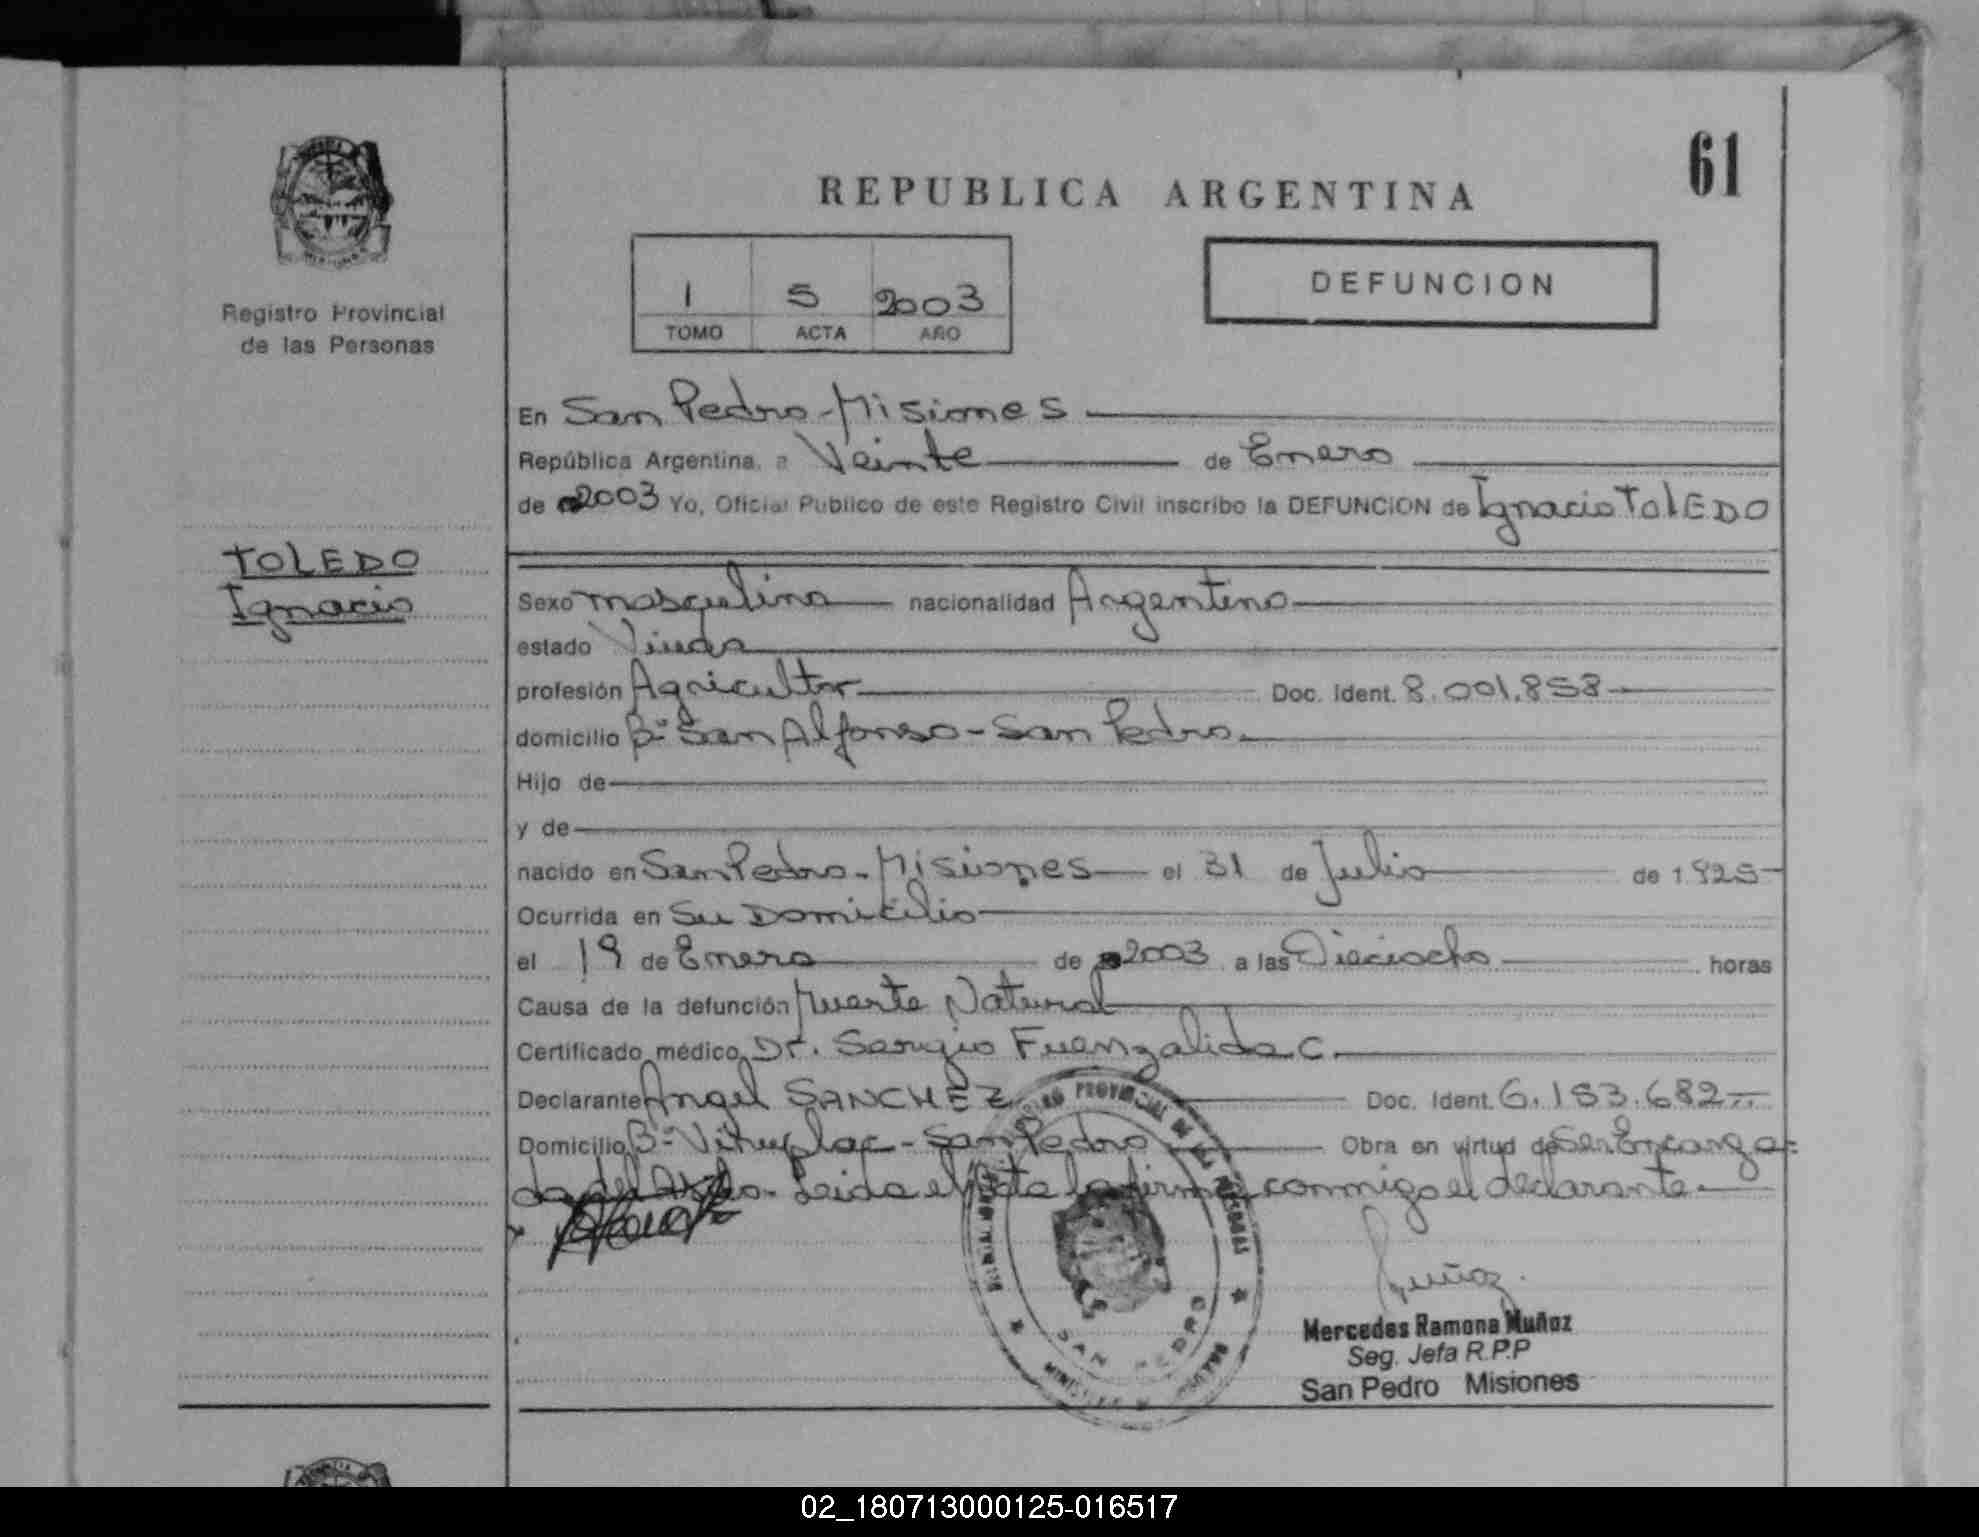 61
REPUBLICA ARGENTINA
1 5 2003
TOMO ACTA AÑO
DEFUNCION
Registro Provincial
de las Personas
TOLEDO
Ignacio
En San Pedro-Misiones
República Argentina, a Veinte de Enero
de 2003 Yo, Oficial Publico de este Registro Civil inscribo la DEFUNCION de Ignacio TOLEDO
Sexo masculino nacionalidad Argentino
estado Viudo
profesión Agricultor Doc. Ident. 8.001.858
domicilio Bº San Alfonso-San Pedro
Hijo de
y de
nacido en San Pedro-Misiones el 31 de Julio de 1925
Ocurrida en Su Domicilio
el 19 de Enero de 2003 a las Dieciocho horas
Causa de la defunción Muerte Natural
Certificado médico Dr. Sergio Fuenzalida C.
Declarante Angel SANCHEZ Doc. Ident. 6.153.682
Domicilio Bº San Pedro Obra en virtud de Ser Encarga=
do del Leida el Acta la firma conmigo el declarante
Muñoz
Mercedes Ramona Muñoz
Seg. Jefa R.P.P
San Pedro Misiones
PROVINCIAL DE LAS PERSONAS
SAN PEDRO
02_180713000125-016517